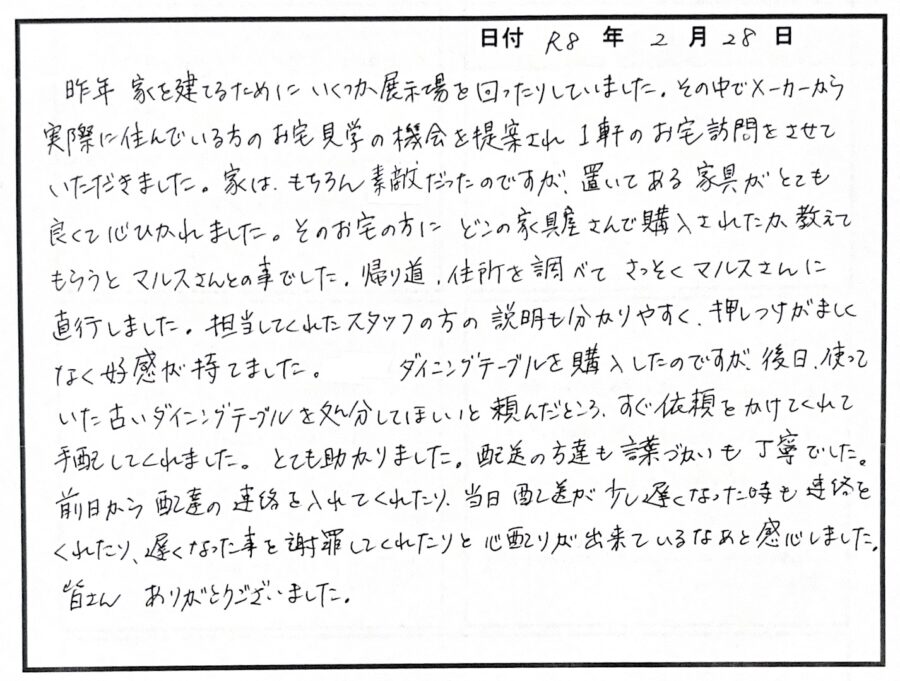 日付 R8 年 2 月 28 日
昨年 家を建てるために いくつか展示場を回ったりしていました。その中でメーカーから
実際に住んでいる方のお宅見学の機会を提案され 1軒のお宅訪問をさせて
いただきました。家は、もちろん素敵だったのですが、置いてある家具がとても
良くて心ひかれました。そのお宅の方に どこの家具屋さんで購入されたか教えて
もらうと マルスさんとの事でした。帰り道、住所を調べて さっそくマルスさんに
直行しました。担当してくれたスタッフの方の説明も分かりやすく、押しつけがましく
なく好感が持てました。 ダイニングテーブルを購入したのですが、後日、使って
いた古いダイニングテーブルを処分してほしいと頼んだところ、すぐ依頼をかけてくれて
手配してくれました。とても助かりました。配送の方達も言葉づかいも丁寧でした。
前日から配達の連絡を入れてくれたり、当日配送が少し遅くなった時も連絡を
くれたり、遅くなった事を謝罪してくれたりと心配りが出来ているなあと感心しました。
皆さん ありがとうございました。